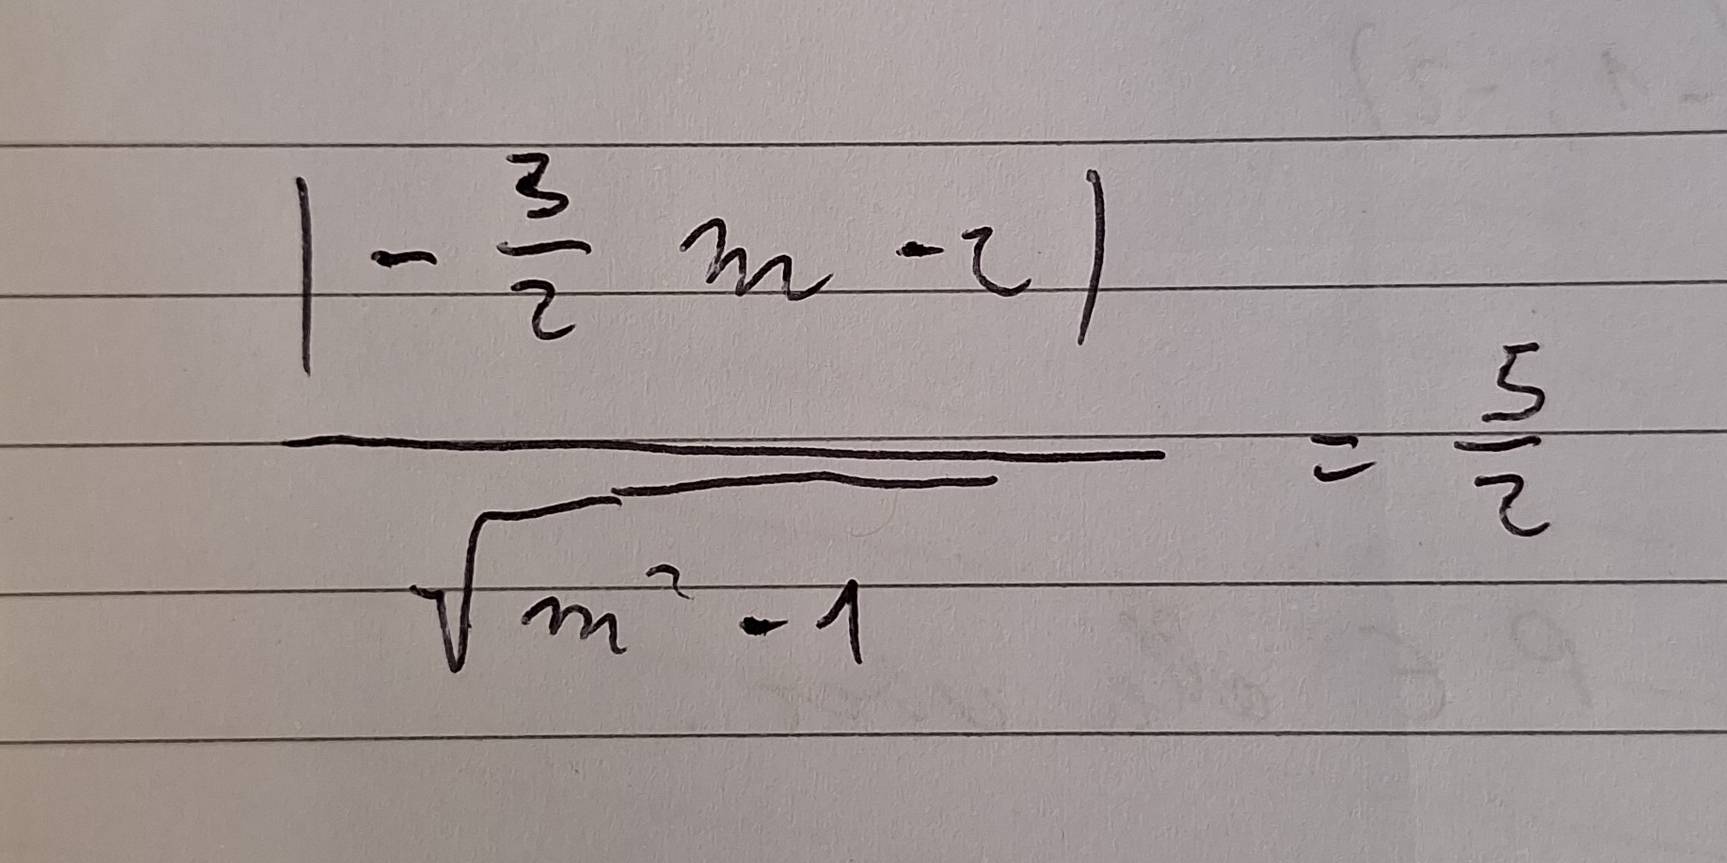 |-3/2 m -2| / √(m² - 1) = 5/2